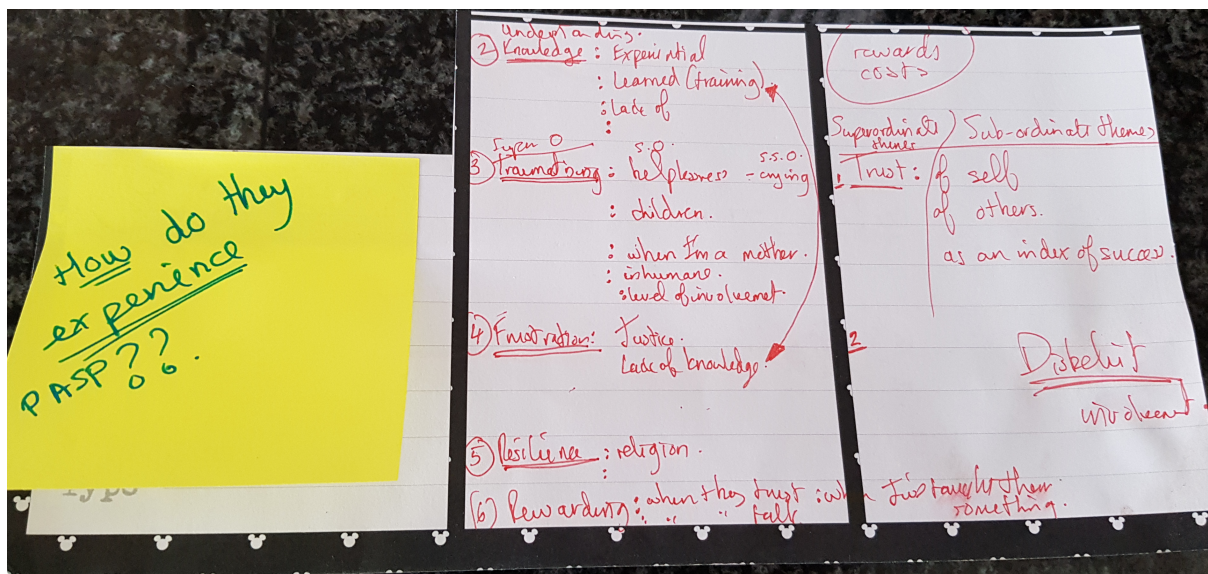 How do they
experience
PASP??
Type
Understanding.
② Knowledge : Experiential
: Learned (training)
: Lack of
:
Super O S.O. S.S.O.
③ Traumatising : helplessness - crying
: children.
: when I'm a mother.
: inhumane.
: level of involvemet.
④ Frustration: Justice.
Lack of knowledge.
⑤ Resilience : religion.
:
(6) Rewarding : when they trust : when I've taught them
: " " talk something.
rewards
costs
Superordinate themes / Sub-ordinate themes
1. Trust : of self
of others.
as an index of success.
2
involvement